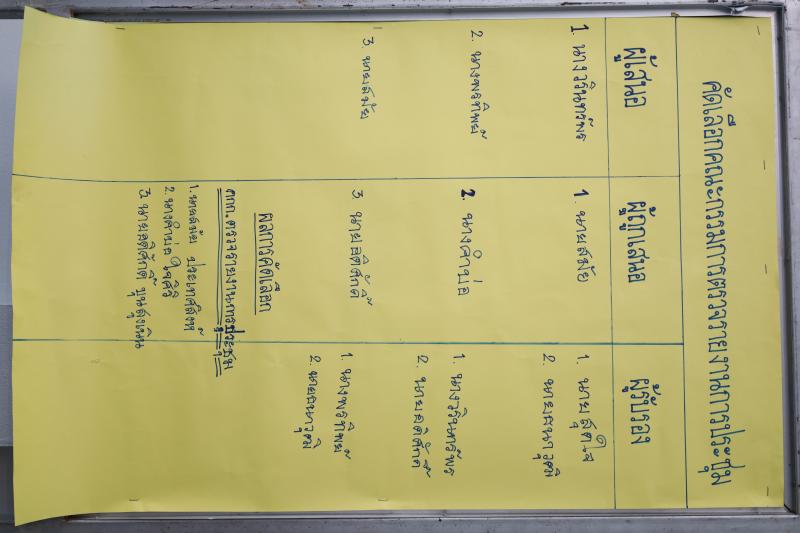 คัดเลือกคณะกรรมการตรวจรายงานการประชุม
ผู้เสนอ
ผู้ถูกเสนอ
ผู้รับรอง
1. นางวรินทร์พร
1. นายสมัย
1. นายสุดใจ
2. นายธนาวุฒิ
2. นางพรทิพย์
2. นางคำบ่อ
1. นางวรินทร์พร
2. นายอดิศักดิ์
3. นายสมัย
3. นายอดิศักดิ์
1. นางพรทิพย์
2. นายธนาวุฒิ
ผลการคัดเลือก
คกก.ตรวจรายงานการประชุม
1. นายสมัย ประเทศสิงห์
2. นางคำบ่อ ใจศิริ
3. นายอดิศักดิ์ ขุนสูงเนิน